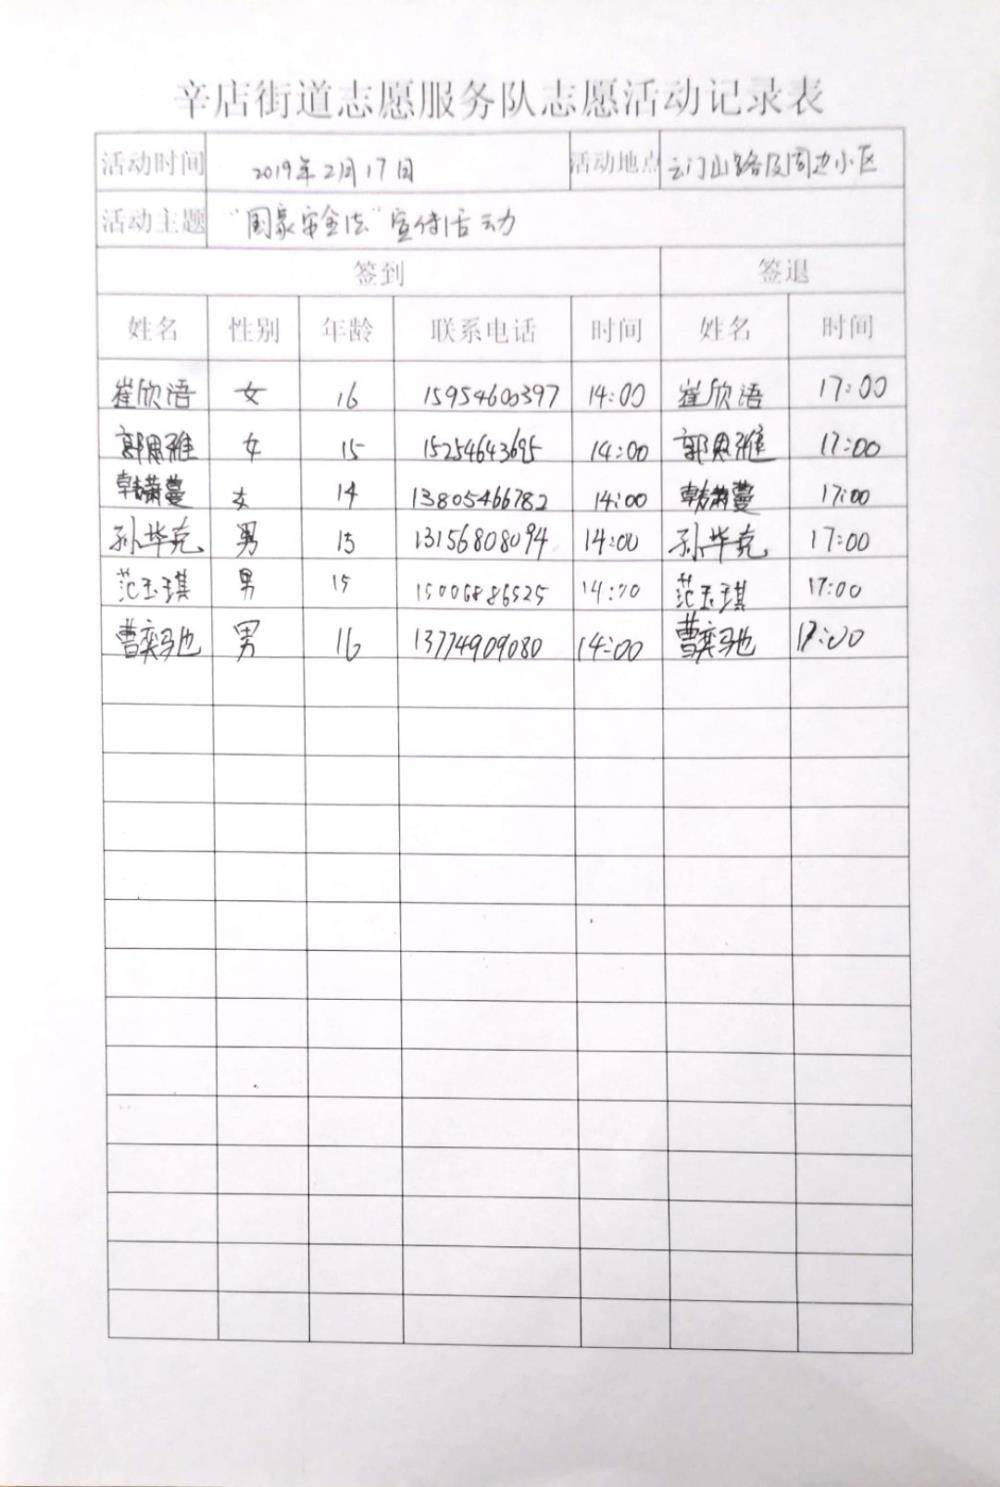 辛店街道志愿服务队志愿活动记录表
活动时间 2019年2月17日 活动地点 云门山路及周边小区
活动主题 "国家安全法"宣传活动
签到 签退
姓名 性别 年龄 联系电话 时间 姓名 时间
崔欣语 女 16 15954600397 14:00 崔欣语 17:00
郭思雅 女 15 15254643695 14:00 郭思雅 17:00
韩萧蔓 女 14 13805466782 14:00 韩萧蔓 17:00
孙毕克 男 15 13156808094 14:00 孙毕克 17:00
范玉琪 男 15 15006886525 14:00 范玉琪 17:00
曹奕驰 男 16 13774909080 14:00 曹奕驰 17:00